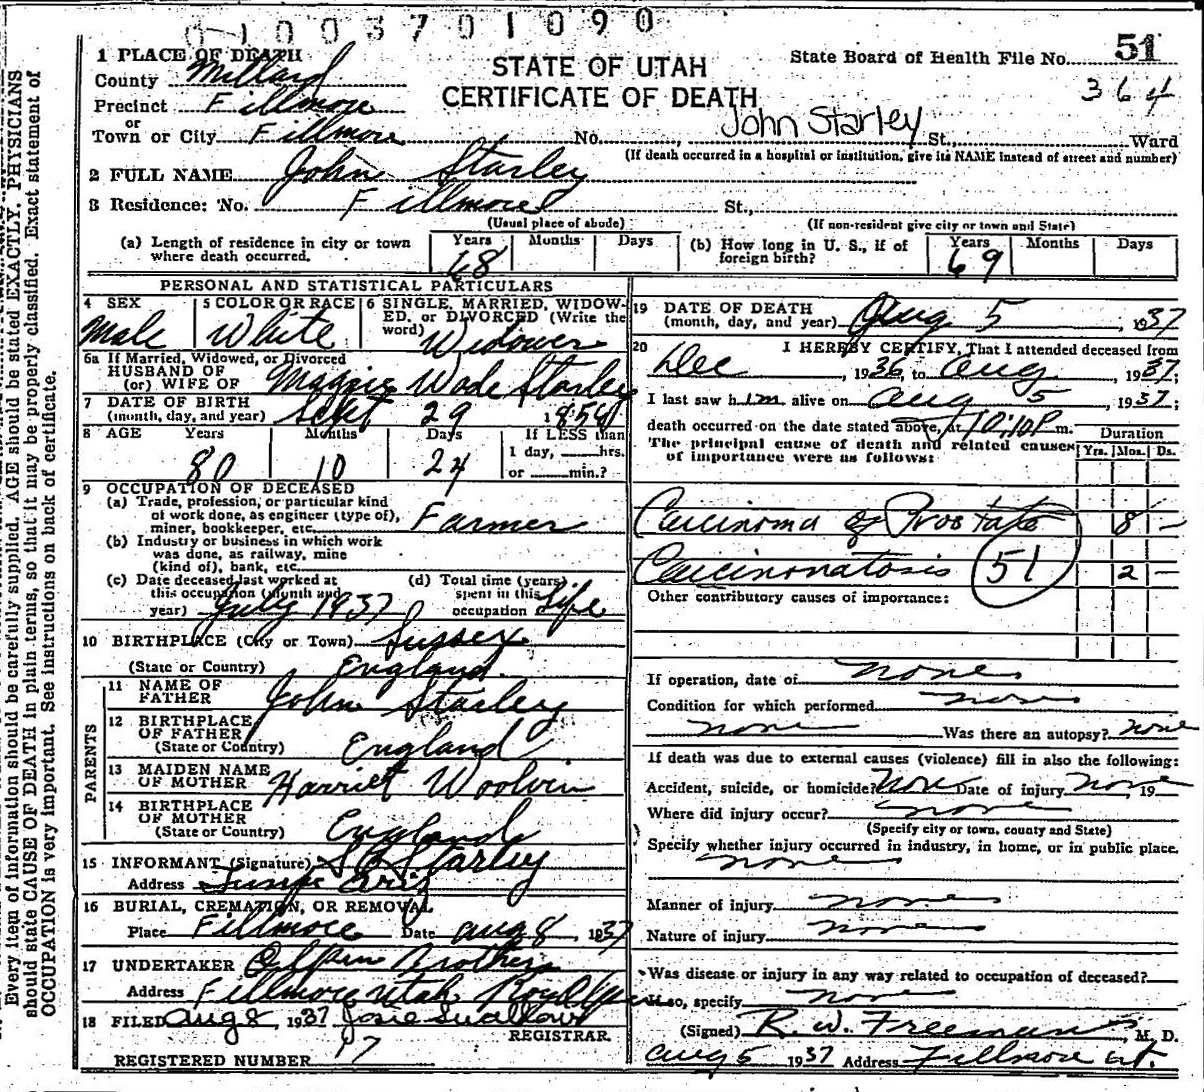 0 1 0 0 3 7 0 1 0 9 0
1 PLACE OF DEATH
County Millard
Precinct Fillmore
or
Town or City Fillmore
STATE OF UTAH
CERTIFICATE OF DEATH
State Board of Health File No. 51
364
No. John Starley St., Ward
(If death occurred in a hospital or institution, give its NAME instead of street and number)
2 FULL NAME John Starley
3 Residence: No. Fillmore St.,
(Usual place of abode) (If non-resident give city or town and State)
(a) Length of residence in city or town where death occurred. Years 68 Months Days
(b) How long in U. S., if of foreign birth? Years 69 Months Days
PERSONAL AND STATISTICAL PARTICULARS
4 SEX Male
5 COLOR OR RACE White
6 SINGLE, MARRIED, WIDOWED, or DIVORCED (Write the word) Widower
6a If Married, Widowed, or Divorced
HUSBAND OF
(or) WIFE OF Maggie Wade Starley
7 DATE OF BIRTH
(month, day, and year) Sept 29 185
8 AGE Years 80 Months 10 Days 24
If LESS than
1 day, hrs.
or min.?
9 OCCUPATION OF DECEASED
(a) Trade, profession, or particular kind
of work done, as engineer (type of),
miner, bookkeeper, etc. Farmer
(b) Industry or business in which work
was done, as railway, mine
(kind of), bank, etc.
(c) Date deceased last worked at
this occupation (Month and
year) July 1937
(d) Total time (years)
spent in this
occupation Life
10 BIRTHPLACE (City or Town) Sussex
(State or Country) England.
PARENTS
11 NAME OF
FATHER John Starley
12 BIRTHPLACE
OF FATHER
(State or Country) England
13 MAIDEN NAME
OF MOTHER Harriet Woolvin
14 BIRTHPLACE
OF MOTHER
(State or Country) England
15 INFORMANT (Signature) Starley
Address Ariz
16 BURIAL, CREMATION, OR REMOVAL
Place Fillmore Date Aug 8, 1937
17 UNDERTAKER Brothers
Address Fillmore Utah
18 FILED Aug 8 1937 Josie Swallow
REGISTRAR.
REGISTERED NUMBER 17
19 DATE OF DEATH
(month, day, and year) Aug 5, 1937
20 I HEREBY CERTIFY, That I attended deceased from
Dec, 1936, to Aug, 1937;
I last saw him alive on Aug 5, 1937;
death occurred on the date stated above, at 10:10 P m.
The principal cause of death and related causes
of importance were as follows:
Duration
Yrs. Mos. Ds.
Carcinoma of Prostate 8 —
Carcinomatosis 51 2 —
Other contributory causes of importance:
If operation, date of none
Condition for which performed none
none Was there an autopsy? none
If death was due to external causes (violence) fill in also the following:
Accident, suicide, or homicide? none Date of injury none, 19
Where did injury occur? none
(Specify city or town, county and State)
Specify whether injury occurred in industry, in home, or in public place.
none
Manner of injury none
Nature of injury none
Was disease or injury in any way related to occupation of deceased?
If so, specify none
(Signed) R. W. Freeman, M. D.
Aug 5 1937 Address Fillmore Ut.
Every item of information should be carefully supplied. AGE should be stated EXACTLY. PHYSICIANS
should state CAUSE OF DEATH in plain terms, so that it may be properly classified. Exact statement of
OCCUPATION is very important. See instructions on back of certificate.